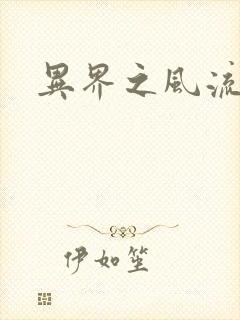 異界之風流
伊如笙